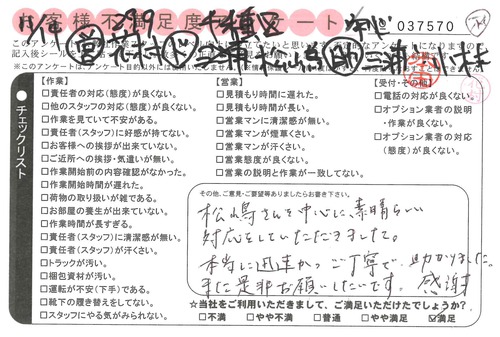 お客様不満足度アンケート
037570
チェックリスト
【作業】
□責任者の対応(態度)が良くない。
□他のスタッフの対応(態度)が良くない。
□作業を見ていて不安がある。
□責任者(スタッフ)に好感が持てない。
□お客様への挨拶が出来ていない。
□ご近所への挨拶・気遣いが無い。
□作業開始前の内容確認がなかった。
□作業開始時間が遅れた。
□荷物の取り扱いが雑である。
□お部屋の養生が出来ていない。
□作業時間が長すぎる。
□責任者(スタッフ)に清潔感が無い。
□責任者(スタッフ)が汗くさい。
□トラックが汚い。
□梱包資材が汚い。
□運転が不安(下手)である。
□靴下の履き替えをしてない。
□スタッフにやる気がみられない。
【営業】
□見積もり時間に遅れた。
□見積もり時間が長い。
□営業マンに清潔感が無い。
□営業マンが煙草くさい。
□営業マンが汗くさい。
□営業態度が良くない。
□営業の説明と作業が一致してない。
【受付・その他】
□電話の対応が良くない。
□オプション業者の説明
・作業が良くない。
□オプション業者の対応
(態度)が良くない。
その他、ご意見・ご要望等ありましたらお書き下さい。
松嶋さんを中心に、素晴らしい
対応をしていただきました。
本当に迅速かつご丁寧で、助かりました。
また是非お願いしたいです。感謝
☆当社をご利用いただきまして、ご満足いただけたでしょうか?
□不満 □やや不満 □普通 □やや満足 ☑満足